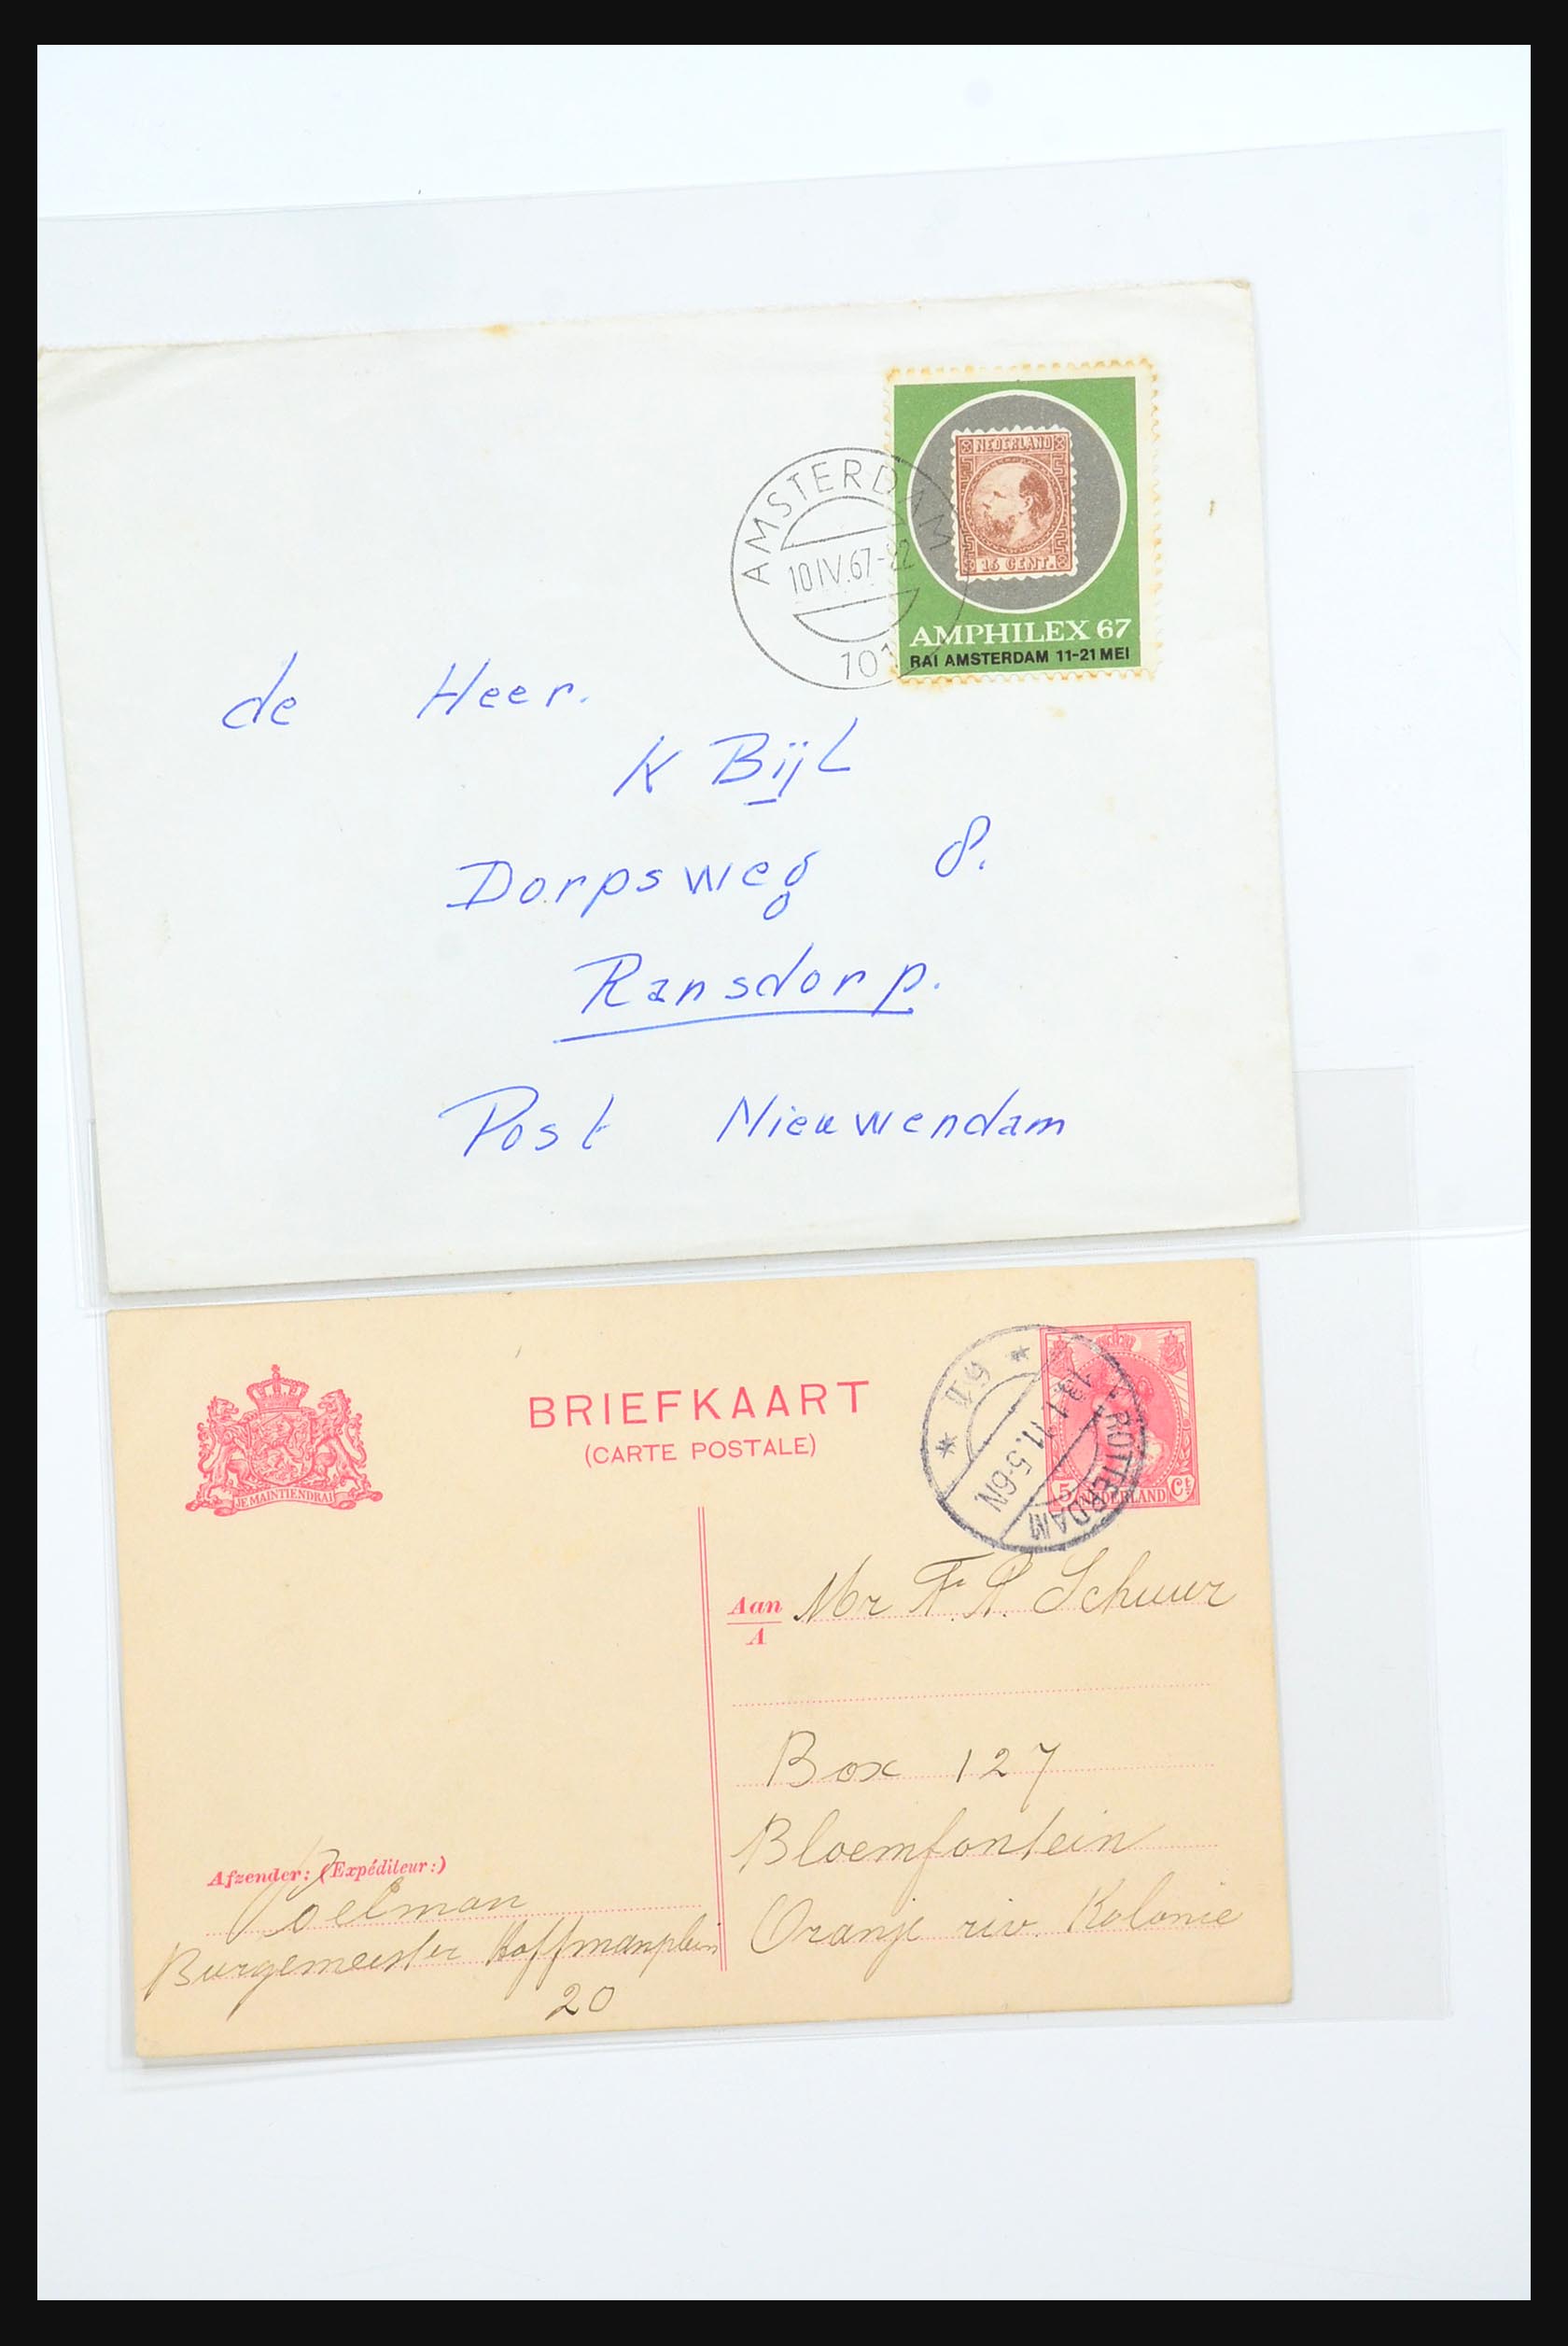 NEDERLAND
15 CENT.
AMPHILEX 67
RAI AMSTERDAM 11-21 MEI
AMSTERDAM
10 IV.67-22
101
de Heer.
K Bijl
Dorpsweg 8.
Ransdorp.
Post Nieuwendam
BRIEFKAART
(CARTE POSTALE)
JE MAINTIENDRAI
5 NEDERLAND Ct
ROTTERDAM
13.1 11.5-6N
Aan Mr F. P. Schuur
A
Box 127
Bloemfontein
Oranje riv. Kolonie
Afzender: (Expéditeur:)
Poelman
Burgemeester Hoffmanplein
20